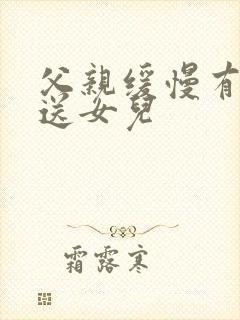 父親缓慢有
送女兒
霜露寒